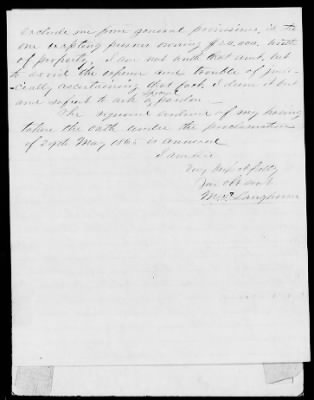 exclude me from general provisions, is the
one excepting persons owning $20,000. worth
of property. I am not worth that amt, but
to avoid the expense and trouble of judi-
cially ascertaining that fact, I deem it but
safe to ask a pardon.
The required evidence of my having
taken the oath under the proclamation
of 29th May 1865 is annexed
I am sir
Very Respectfully
Your obt Servt
Langhorne